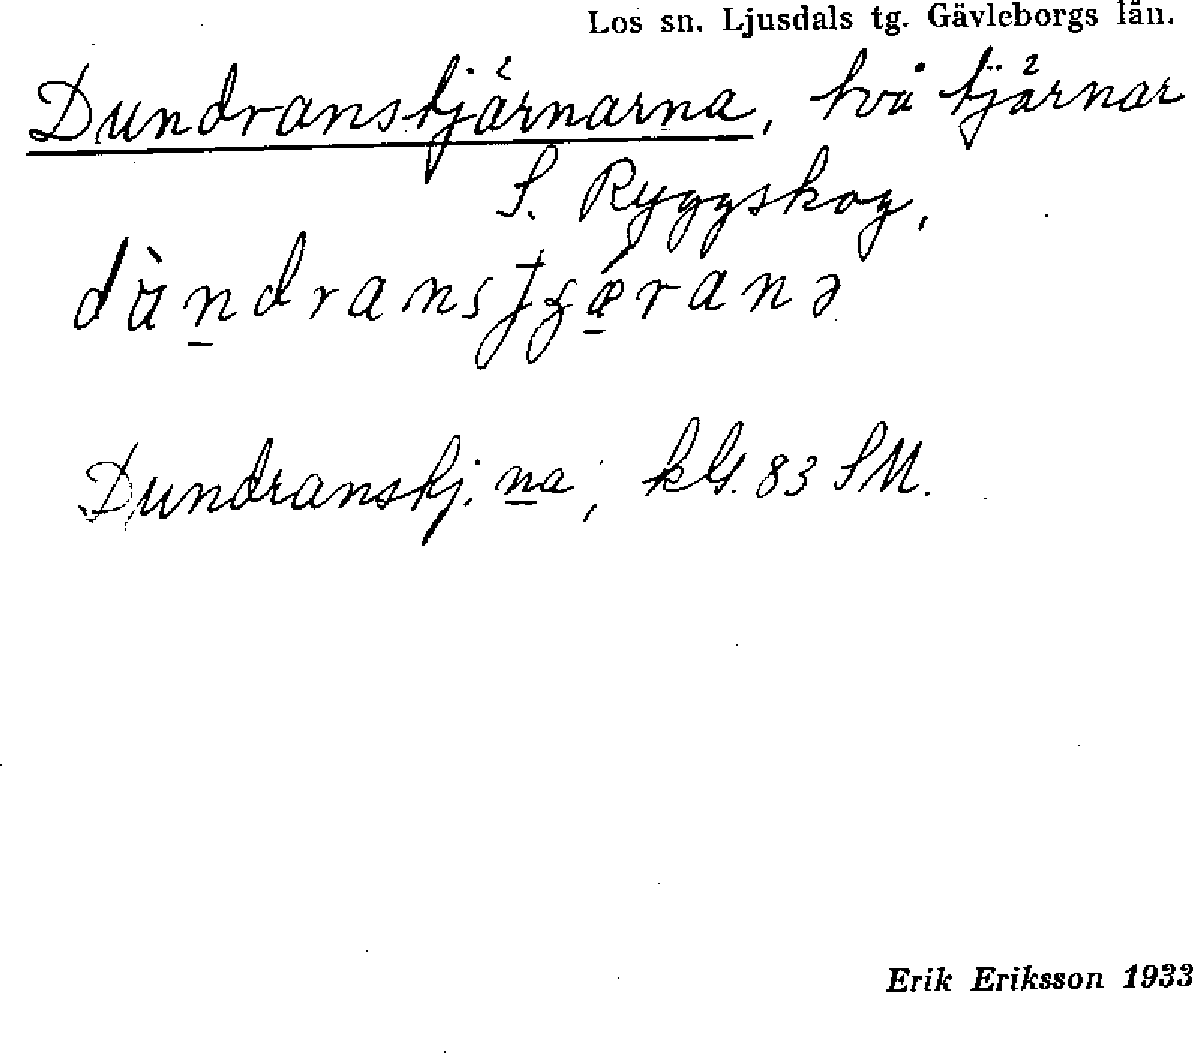 Los sn. Ljusdals tg. Gävleborgs län.
Dundranstjärnarna, två tjärnar
S. Ryggskog,
Dundranstj.na; kbl. 83 SM.
Erik Eriksson 1933